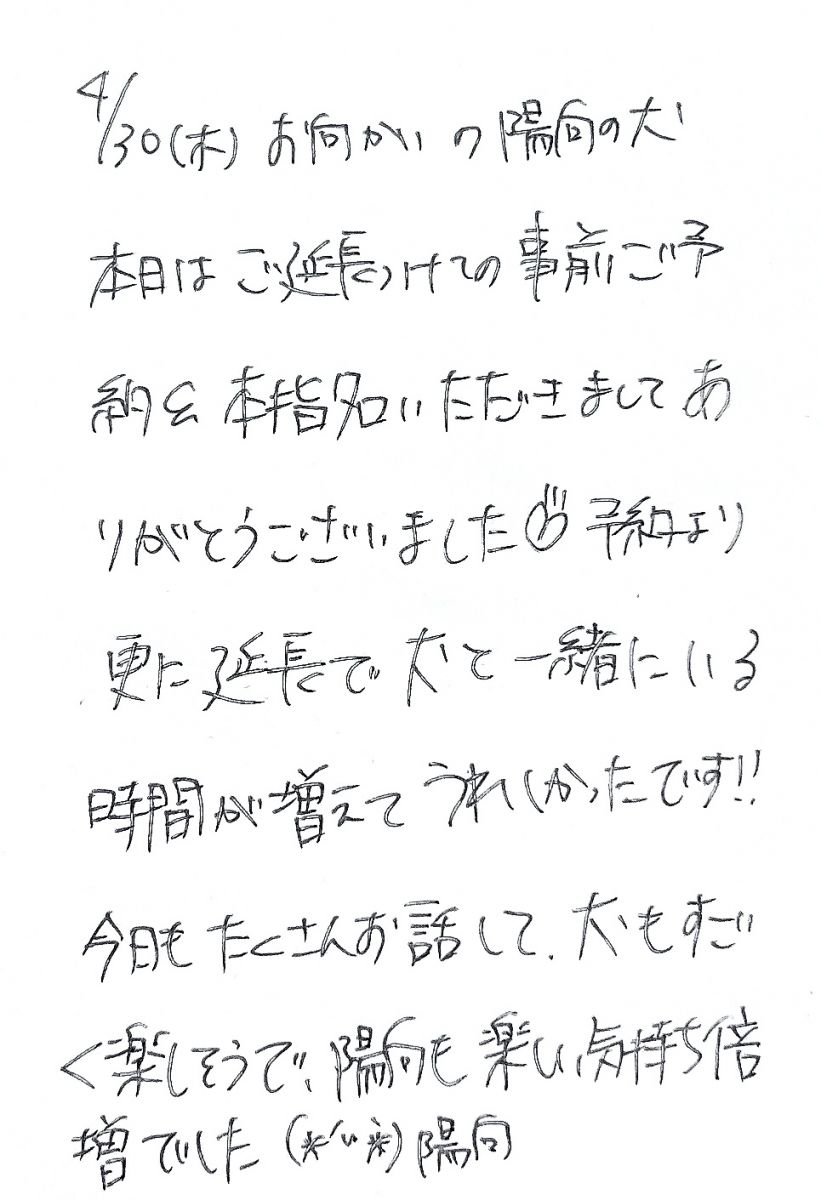 4/30(木) お向かいの陽向の犬
本日はご延長つけての事前ご予
約&本指名いただきましてあ
りがとうございました 予約より
更に延長で犬と一緒にいる
時間が増えてうれしかったです!!
今日もたくさんお話して、犬もすご
く楽しそうで、陽向も楽しい気持ち倍
増でした (*´`*) 陽向